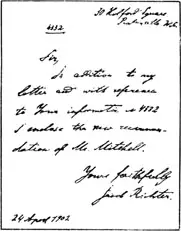 30 Holford Square
Pentonville W.C.
4332
Sir,
In addition to my
letter and with reference
to Your information № 4332
I enclose the new recommen-
dation of Mr. Mitchell.
Yours faithfully
Jacob Richter.
24 April 1902